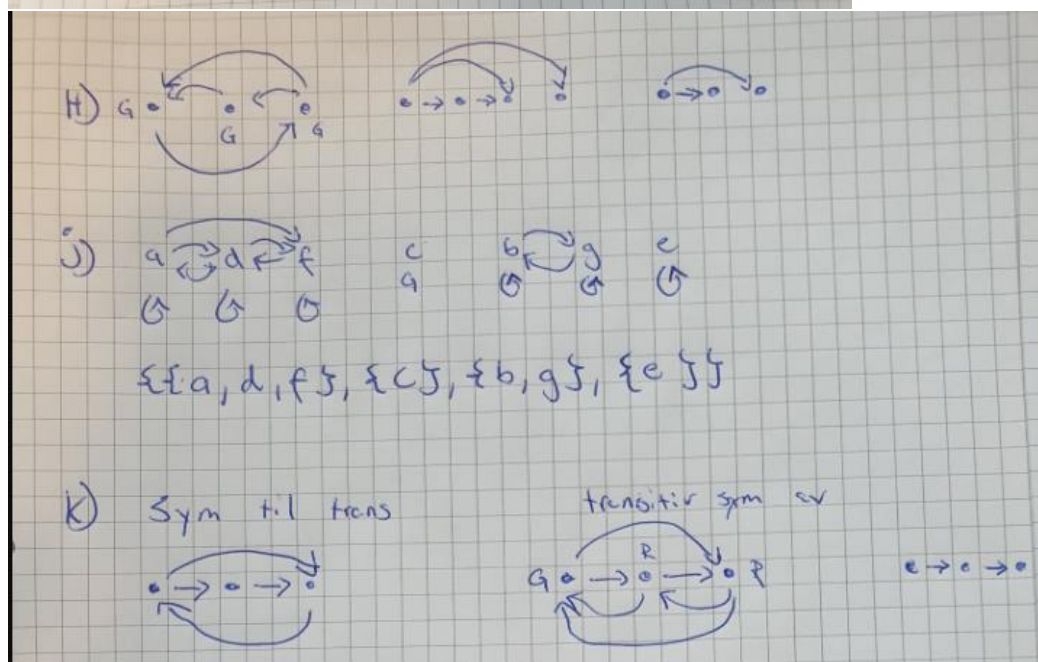 H) G G G
j) a d f c b g e
G G G G G G G
{{a, d, f}, {c}, {b, g}, {e}}
K) Sym til trans transitiv sym av
G R R